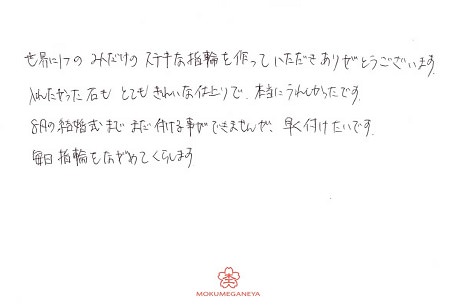 世界に1つの みだけの ステキな指輪を作っていただきありがとうございます。
入れたかった石も とても きれいな仕上りで、本当にうれしかったです。
8月の結婚式まで まだ付ける事ができませんが、早く付けたいです。
毎日指輪をながめてくらします
MOKUMEGANEYA